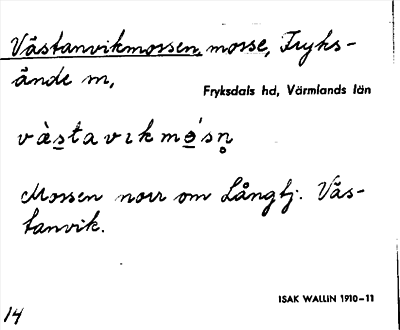 Västanvikmossen, mosse, Fryks-
ände m,
Fryksdals hd, Värmlands län
và̱stavıkmǫ́sn̥
Mossen norr om Långtj. Väs-
tanvik.
ISAK WALLIN 1910-11
14